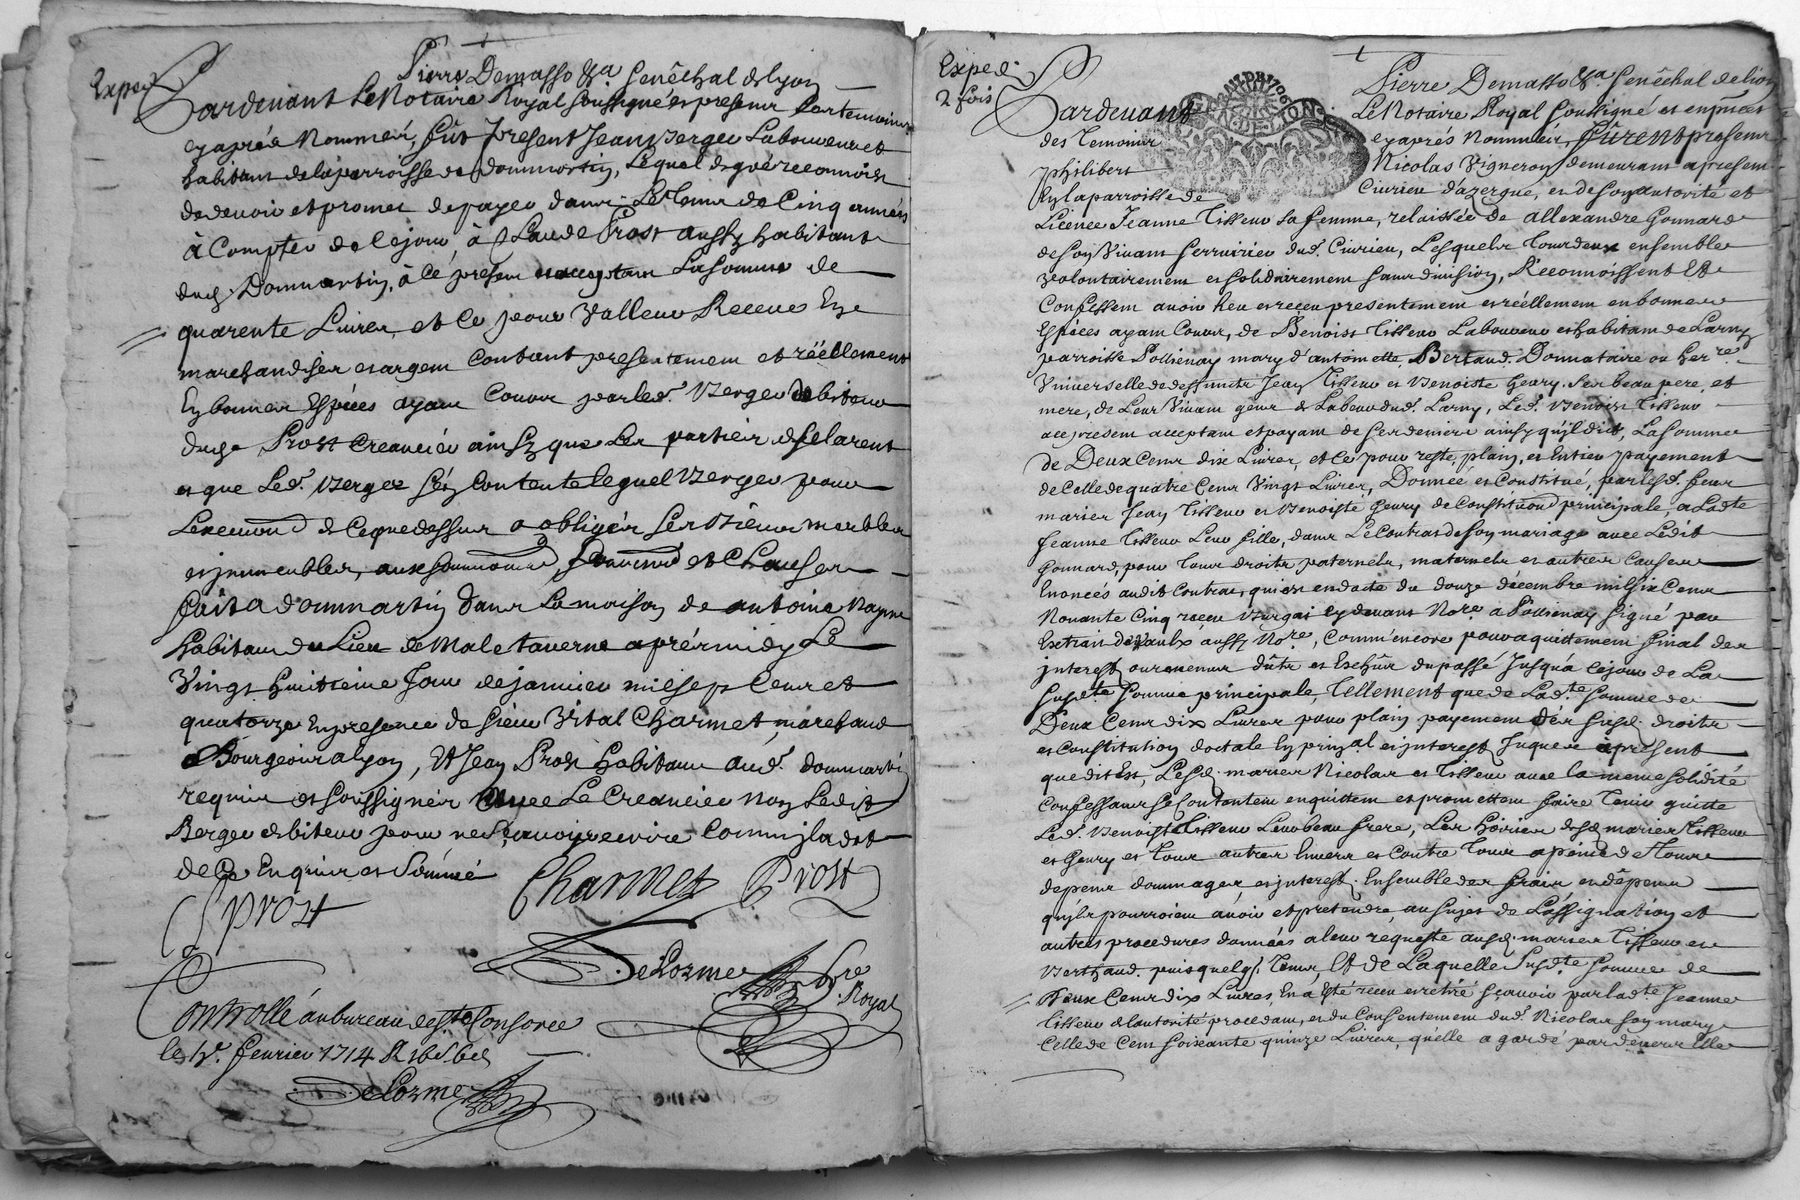 Expedié
Pierre Demasso &a. Senêchal de lyon
Pardevant Le Notaire Royal soussigné et presens Les temoins
cy aprés Nommés, fut present Jean berger Laboureur et
habitant de la parroisse de Dommartin, Lequel de gré reconnoist
de devoir et promet de payer dans Le terme de Cinq années
à Compter de ce jour, à Claude Prost aussy habitant
dud. Dommartin, à ce present et acceptant La somme de
quarente Livres, et ce pour Valleur Receue En
marchandises et argent Contant presentement et réellement
En bonnes Espéces ayant Cours par led. Berger debiteur
dud. Prost Creancier ainsy que Les parties declarent
et que Led. Berger s'en Contente lequel Berger pour
L'execution de ce que dessus a obligé ses biens meubles
et immeubles, aux soumissions, et Clauses
fait a dommartin dans La maison de antoine
habitant du Lieu de Male taverne aprés midy Le
Vingt huitieme Jour de janvier mil sept Cens et
quatorze En presence de sieur Vital Charmet, marchand
Bourgeois a lyon, Et Jean Prost habitant aud. dommartin
requis et soussignés avec Le Creancier non Ledit
Berger debiteur pour ne sçavoir ecrire Comm'il a dit
de ce Enquis et sommé
Charmet Prost
C prost
DeLorme No.re Royal
Controllé au bureau de St. Consorce
le 4e. fevrier 1714 R
DeLorme
Expedié
2 fois
Pierre Demasso &a. Senêchal de lion
Pardevant Le Notaire Royal soussigné et en presence
GNAL DE 1706
N. DE LION
des Temoins cy aprés Nommés, furent presens
philibert Nicolas Vigneron demeurant a present
En la parroisse de Civrieu d'azergue, et de son autorité et
Licence Jeanne Tisseur sa femme, relaissée de allexandre Gonnard
de son Vivant serrurier dud. Civrieu, Lesquels tous deux ensemble
Volontairement et solidairement sans division, Reconnoissent Et
Confessent avoir heu et receu presentement et réellement en bonnes
Espéces ayant Cours, de Benoist Tisseur Laboureur et habitant de Larny
parroisse Pollienay mary d'antoinette Bertaud. Donnataire ou herre.
Universelle de deffunts Jean Tisseur et Benoiste Geury. ses beau pere et
mere, de Leur Vivant gens de Labeur dud. Larny, Led. Benoist Tisseur
a ce present acceptant et payant de ses deniers ainsy qu'il dict, La somme
de Deux Cens dix Livres, et ce pour reste, plain, et Entier payement
de Celle de quatre Cens Vingt Livres, Donnée et Constitué, par lesd. feux
mariés Jean Tisseur et Benoiste Geury de Constitution principale, a Ladte
Jeanne Tisseur Leur fille, dans Le Contrat de son mariage avec Ledit
Gonnard, pour tous droits paternels, maternels et autres Causes
Enoncés audit Contrat, qui est en date du douze decembre mil six Cens
Nonante Cinq receu Burgat cy devant No.re a Pollienay signé par
Extrait Devaulx aussy No.re, Comm'encore pour aquittement final des
jnterest ou revenus dûts et Escheus du passé Jusqu'a ce jour de La
susd.te somme principale, Tellement que de Lad.te somme de
Deux Cens dix Livres pour plain payement des susd. droits
et Constitution doctale En prinpal et interest Juques à present
que dit Est, Lesd. mariés Nicolas et Tisseur avec la meme solidité
Confessants se Contentent en quittent et promettent faire tenir quitte
Led. Benoist Tisseur Leur beau frere, Les hoiries desd. mariés Tisseur
et Geury et tous autres Envers et Contre tous a peine de tous
depens dommages et interest. Ensemble des frais et dépens
qu'ils pourroient avoir et pretendre, au sujet de L'assignation et
autres procedures données a leur requeste ausd. mariés Tisseur et
Berthaud. puis quelq. tems, Et de Laquelle susd.te somme de
Deux Cens dix Livres, En a Esté receu et retiré sçavoir par ladte Jeanne
Tisseur de l'autorité procedant, et du Consentement dud. Nicolas son mary
Celle de Cent soixante quinze Livres, qu'elle a gardé par devers Elle